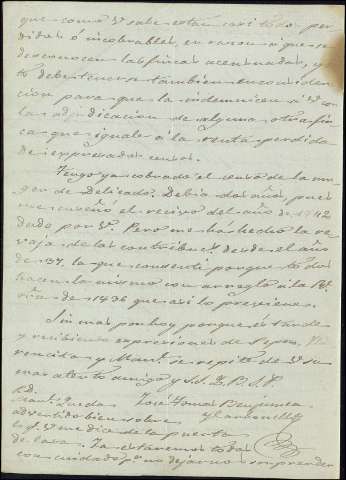 que como V. sabe están casi todos per-
didas ó incobrables, en razon á que se
desconocen las fincas acensuadas, y
to debe tenerse también en conside-
cion para que la indemnicen á V. con
la adjudicacion de alguna otra fin-
ca que iguale á la renta perdida
de expresados censos.
Tengo ya cobrado el censo de la mu-
ger de Delicado. Debia dos años, pues
me enseñó el recivo del año de 1842
dado por V. Pero me ha hecho la re-
vaja de las contribuc.s desde el año
de 37, lo que consentí porque todos
hacen lo mismo con arreglo á la
de 1836 que asi lo previene.
Sin mas por hoy porque es tarde
y recibiendo expresiones de Pepa,
y se repite de V. su
mas atento amigo y S.S. Q.B.S.M.
José Tomas
P.D.
Queda
advertido bien sobre
lo q.e V. me dice de la puerta
de casa. Ya estaremos todos
con cuidado p.a no dejarnos sorprender